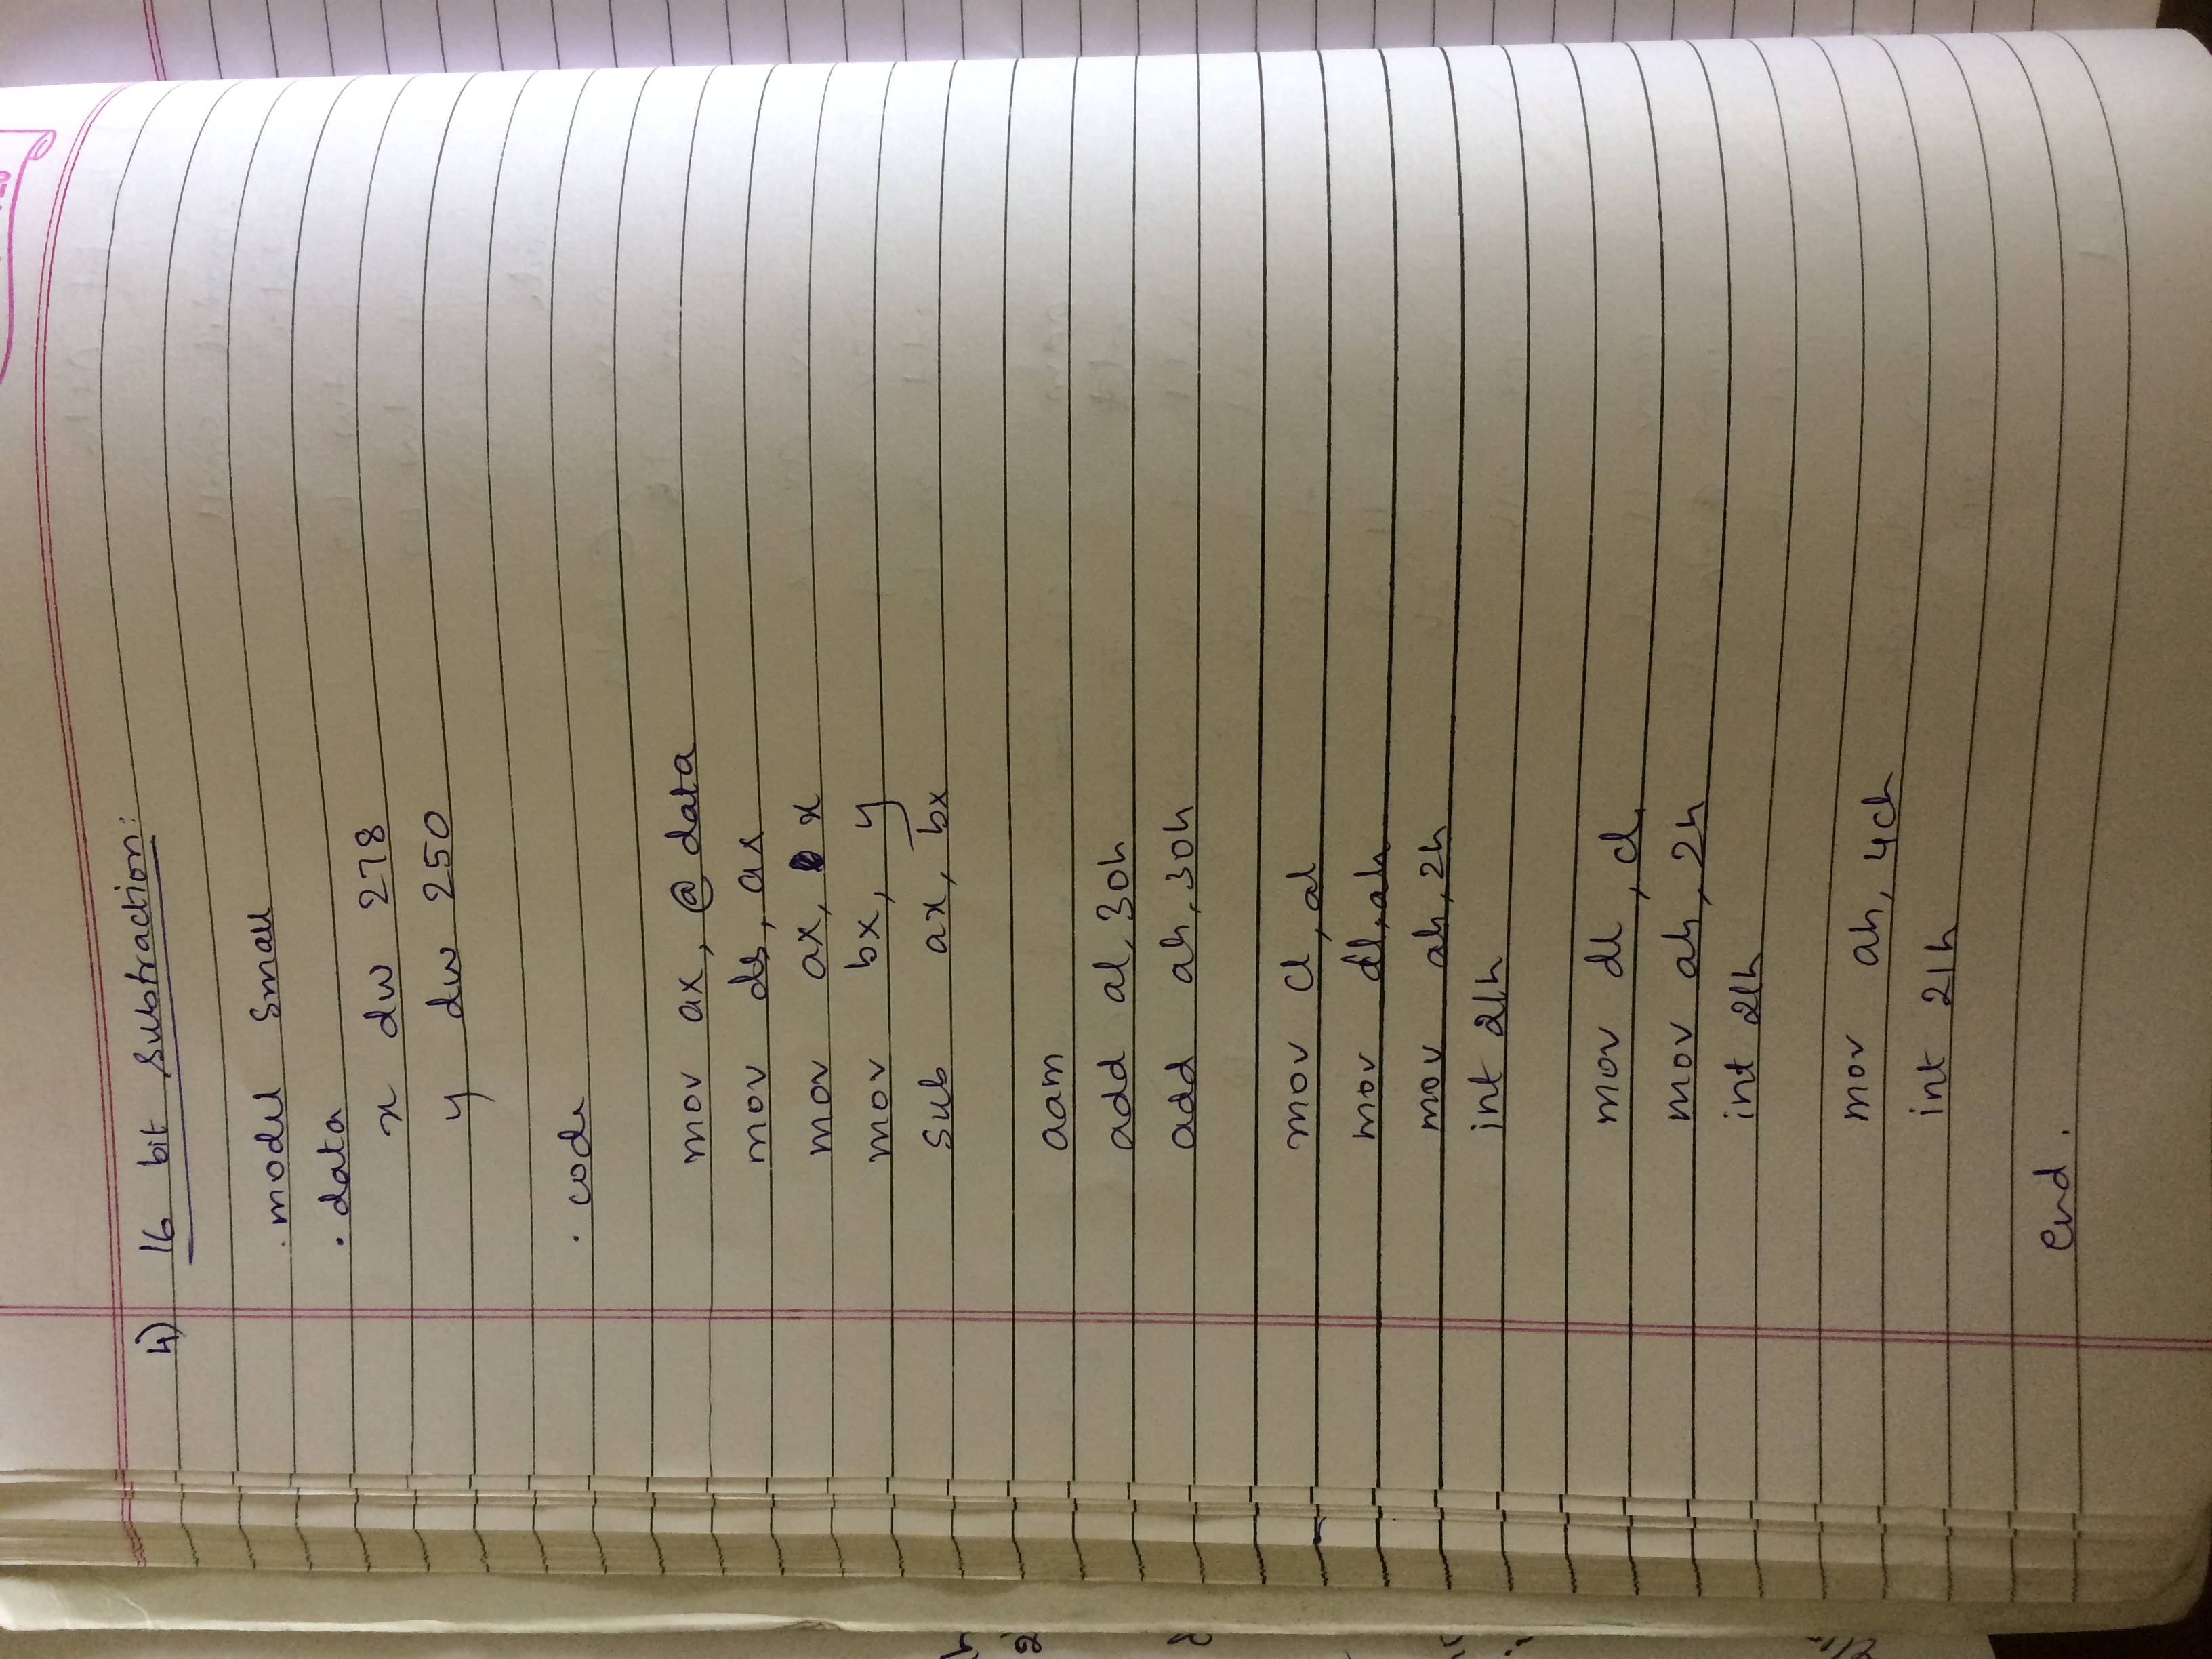 4) 16 bit Subtraction:
.model small
.data
x dw 278
y dw 250
.code
mov ax, @data
mov ds, ax
mov ax, x
mov bx, y
sub ax, bx
aam
add al, 30h
add ah, 30h
mov cl, al
mov dl, ah
mov ah, 2h
int 21h
mov dl, cl
mov ah, 2h
int 21h
mov ah, 4ch
int 21h
end.